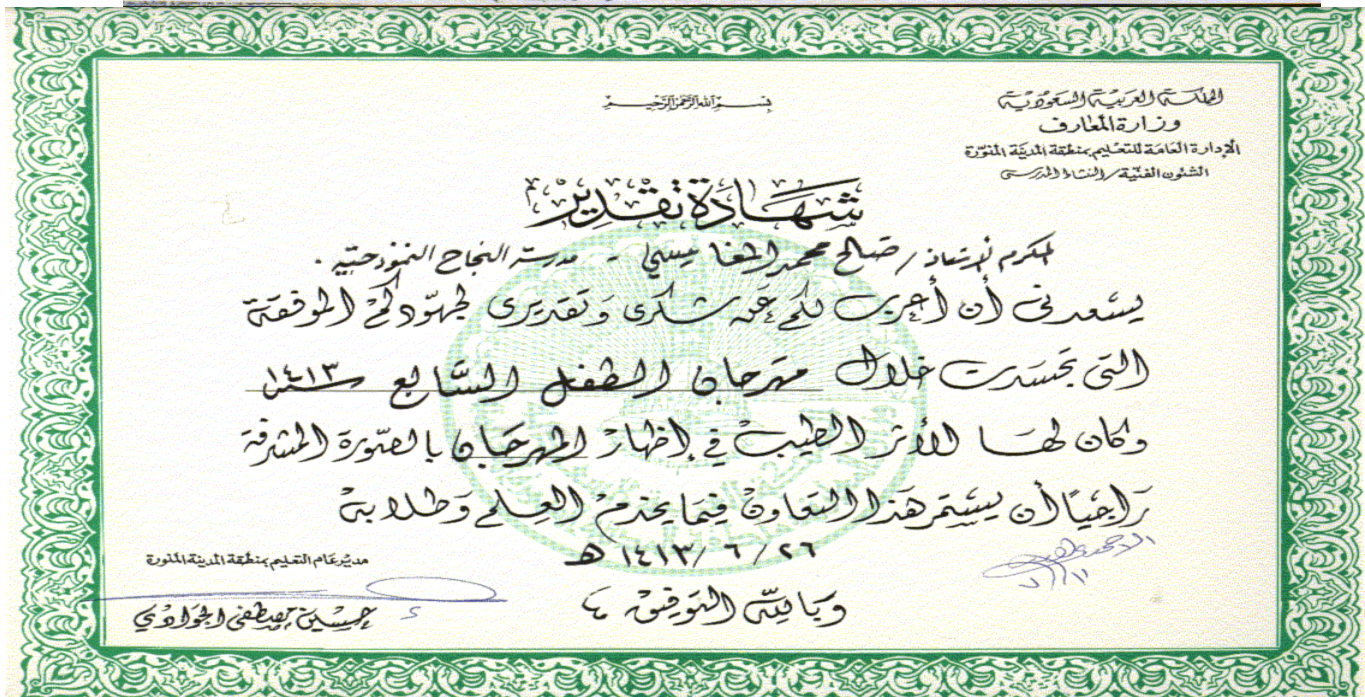 بسم الله الرحمن الرحيم
المملكة العربية السعودية
وزارة المعارف
الإدارة العامة للتعليم بمنطقة المدينة المنورة
الشئون الفنية / النشاط المدرسى
شهادة تقدير
المكرم الأستاذ / صالح محمد المغامسي - مدرسة النجاح النموذجية .
يسعدنى أن أعرب لكم عن شكرى وتقديرى لجهودكم الموفقة
التى تجسدت خلال مهرجان الطفل السابع ١٤١٣
وكان لها الأثر الطيب في إظهار المهرجان بالصورة المشرفة
راجيًا أن يستمر هذا التعاون فيما يخدم العلم وطلابه
٢٦ / ٦ / ١٤١٣ ه
وبالله التوفيق
مدير عام التعليم بمنطقة المدينة المنورة
حسين مصطفى الجوادي